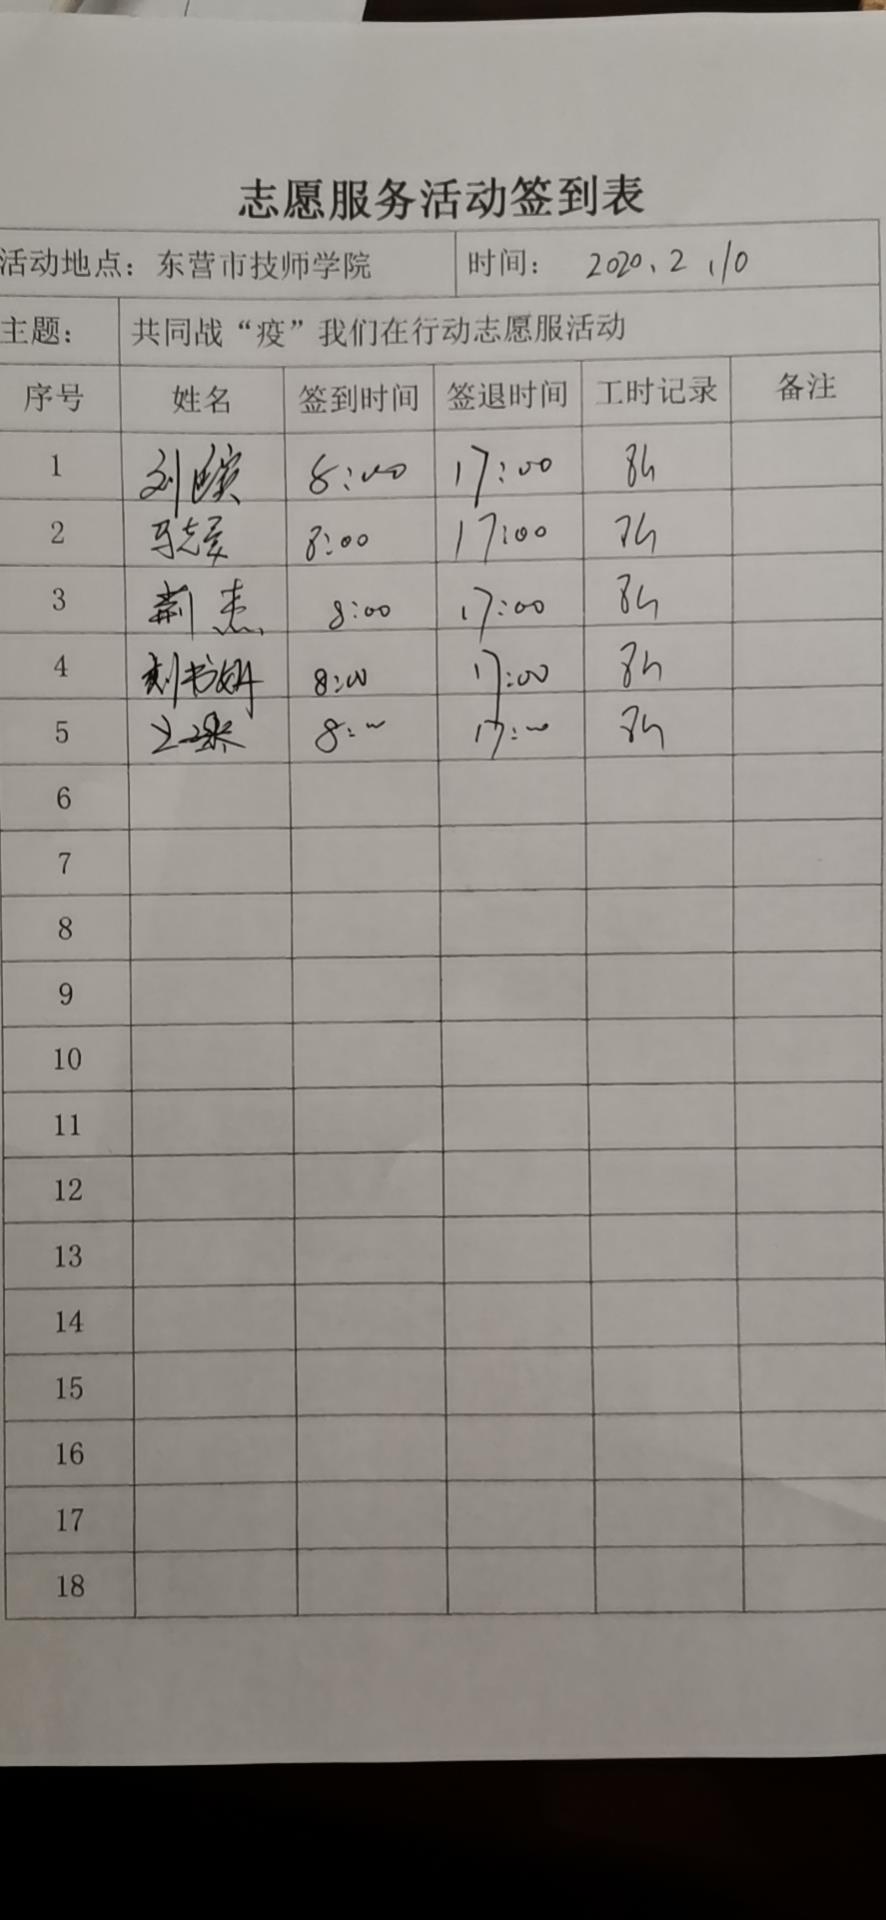 志愿服务活动签到表
活动地点：东营市技师学院 时间： 2020.2.10
主题： 共同战“疫”我们在行动志愿服活动
序号 姓名 签到时间 签退时间 工时记录 备注
1 刘 8:00 17:00 8h
2 马志 8:00 17:00 8h
3 荆杰 8:00 17:00 8h
4 刘书妍 8:00 17:00 8h
5 8:00 17:00 8h
6
7
8
9
10
11
12
13
14
15
16
17
18